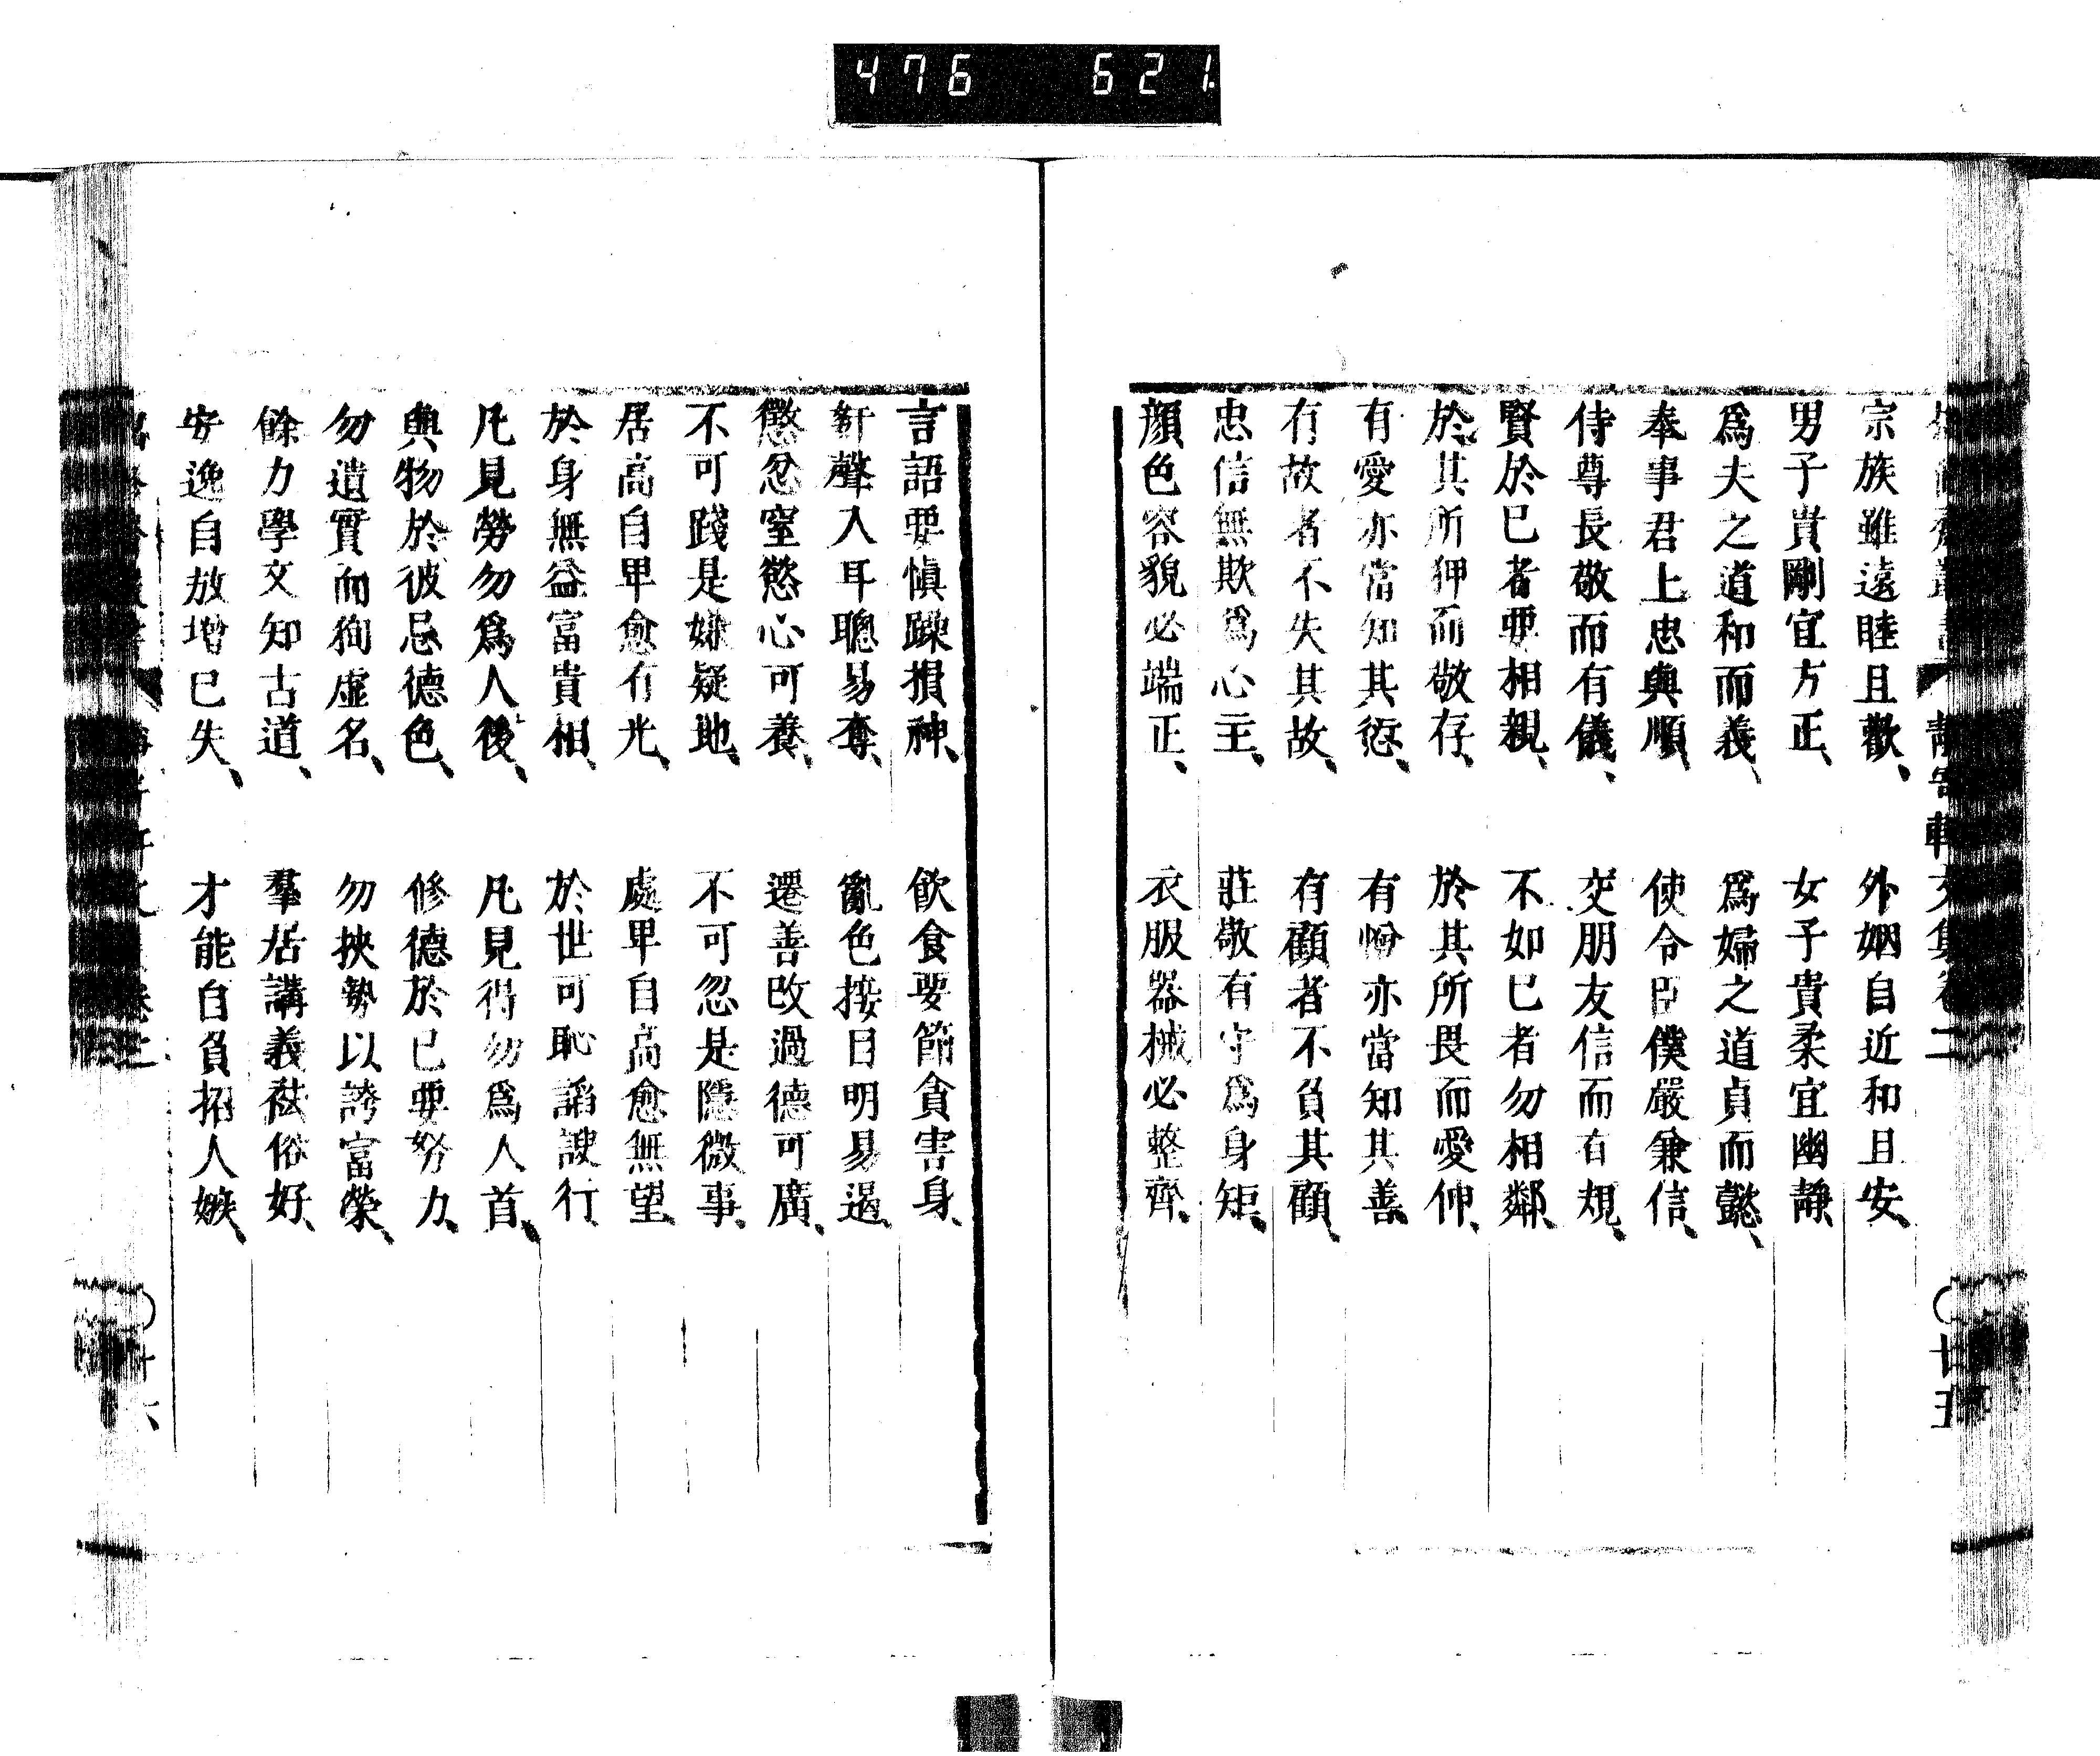 476 621
宗族雖遠睦且歡、 外姻自近和且安、
男子貴剛宜方正、 女子貴柔宜幽靜、
爲夫之道和而義、 爲婦之道貞而懿、
奉事君上忠與順、 使令臣僕嚴兼信、
侍尊長敬而有儀、 交朋友信而有規、
賢於已者要相親、 不如已者勿相鄰、
於其所狎而敬存、 於其所畏而愛伸、
有愛亦當知其愆、 有憎亦當知其善、
有故者不失其故、 有顧者不負其顧、
忠信無欺爲心主、 莊敬有守爲身矩、
顔色容貌必端正、 衣服器械必整齊、
言語要愼躁損神、 飮食要節貪害身、
姧聲入耳聰易奪、 亂色接目明易遏、
懲忿窒慾心可養、 遷善改過德可廣、
不可踐是嫌疑地、 不可忽是隱微事、
居高自卑愈有光、 處卑自高愈無望、
於身無益富貴相、 於世可恥謟諛行、
凡見勞勿爲人後、 凡見得勿爲人首、
與物於彼忌德色、 修德於已要努力、
勿遺實而徇虛名、 勿挾勢以誇富榮、
餘力學文知古道、 羣居講義袪俗好、
安逸自放增已失、 才能自負招人嫉、